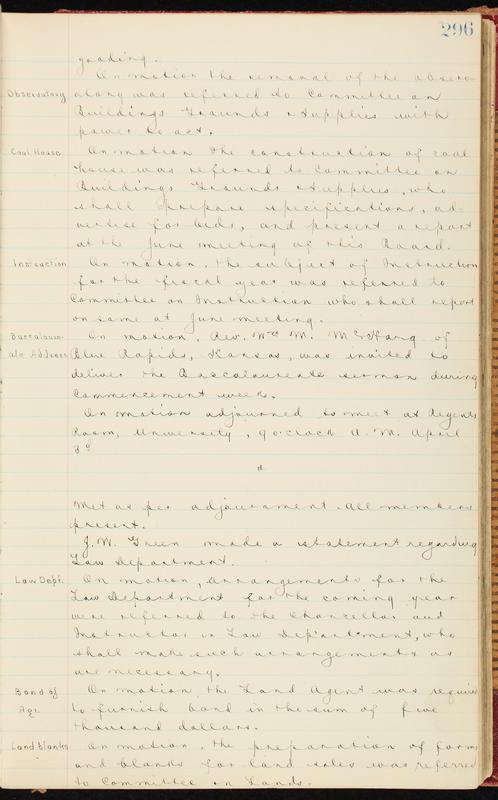 296
grading.
On motion the removal of the observ-
Observatory
atory was referred to Committee on
Buildings Grounds & Supplies with
power to act.
Coal House
On motion the construction of coal
house was referred to Committee on
Buildings Grounds & Supplies, who
shall prepare specifications, ad-
vertise for bids, and present a report
at the June meeting of this Board.
Instruction
On motion, the subject of Instruction
for the fiscal year was referred to
Committee on Instruction who shall report
on same at June meeting.
Baccalaure-
ate Address
On motion, Rev. Wm M. McHarg of
Blue Rapids, Kansas, was invited to
deliver the Baccalaureate sermon during
Commencement week.
On motion adjourned to meet at Regents
Room, University, 9 o'clock A. M. April
3d
Met as per adjournment. All members
present.
J. W. Green made a statement regarding
Law Department.
Law Dept.
On motion, arrangements for the
Law Department for the coming year
were referred to the Chancellor and
Instructor in Law Department, who
shall make such arrangements as
are necessary.
Bond of
Agt.
On motion, the Land Agent was require
to furnish bond in the sum of five
thousand dollars.
Land blanks
On motion, the preparation of forms
and blanks for land sales was referred
to Committee on Lands.